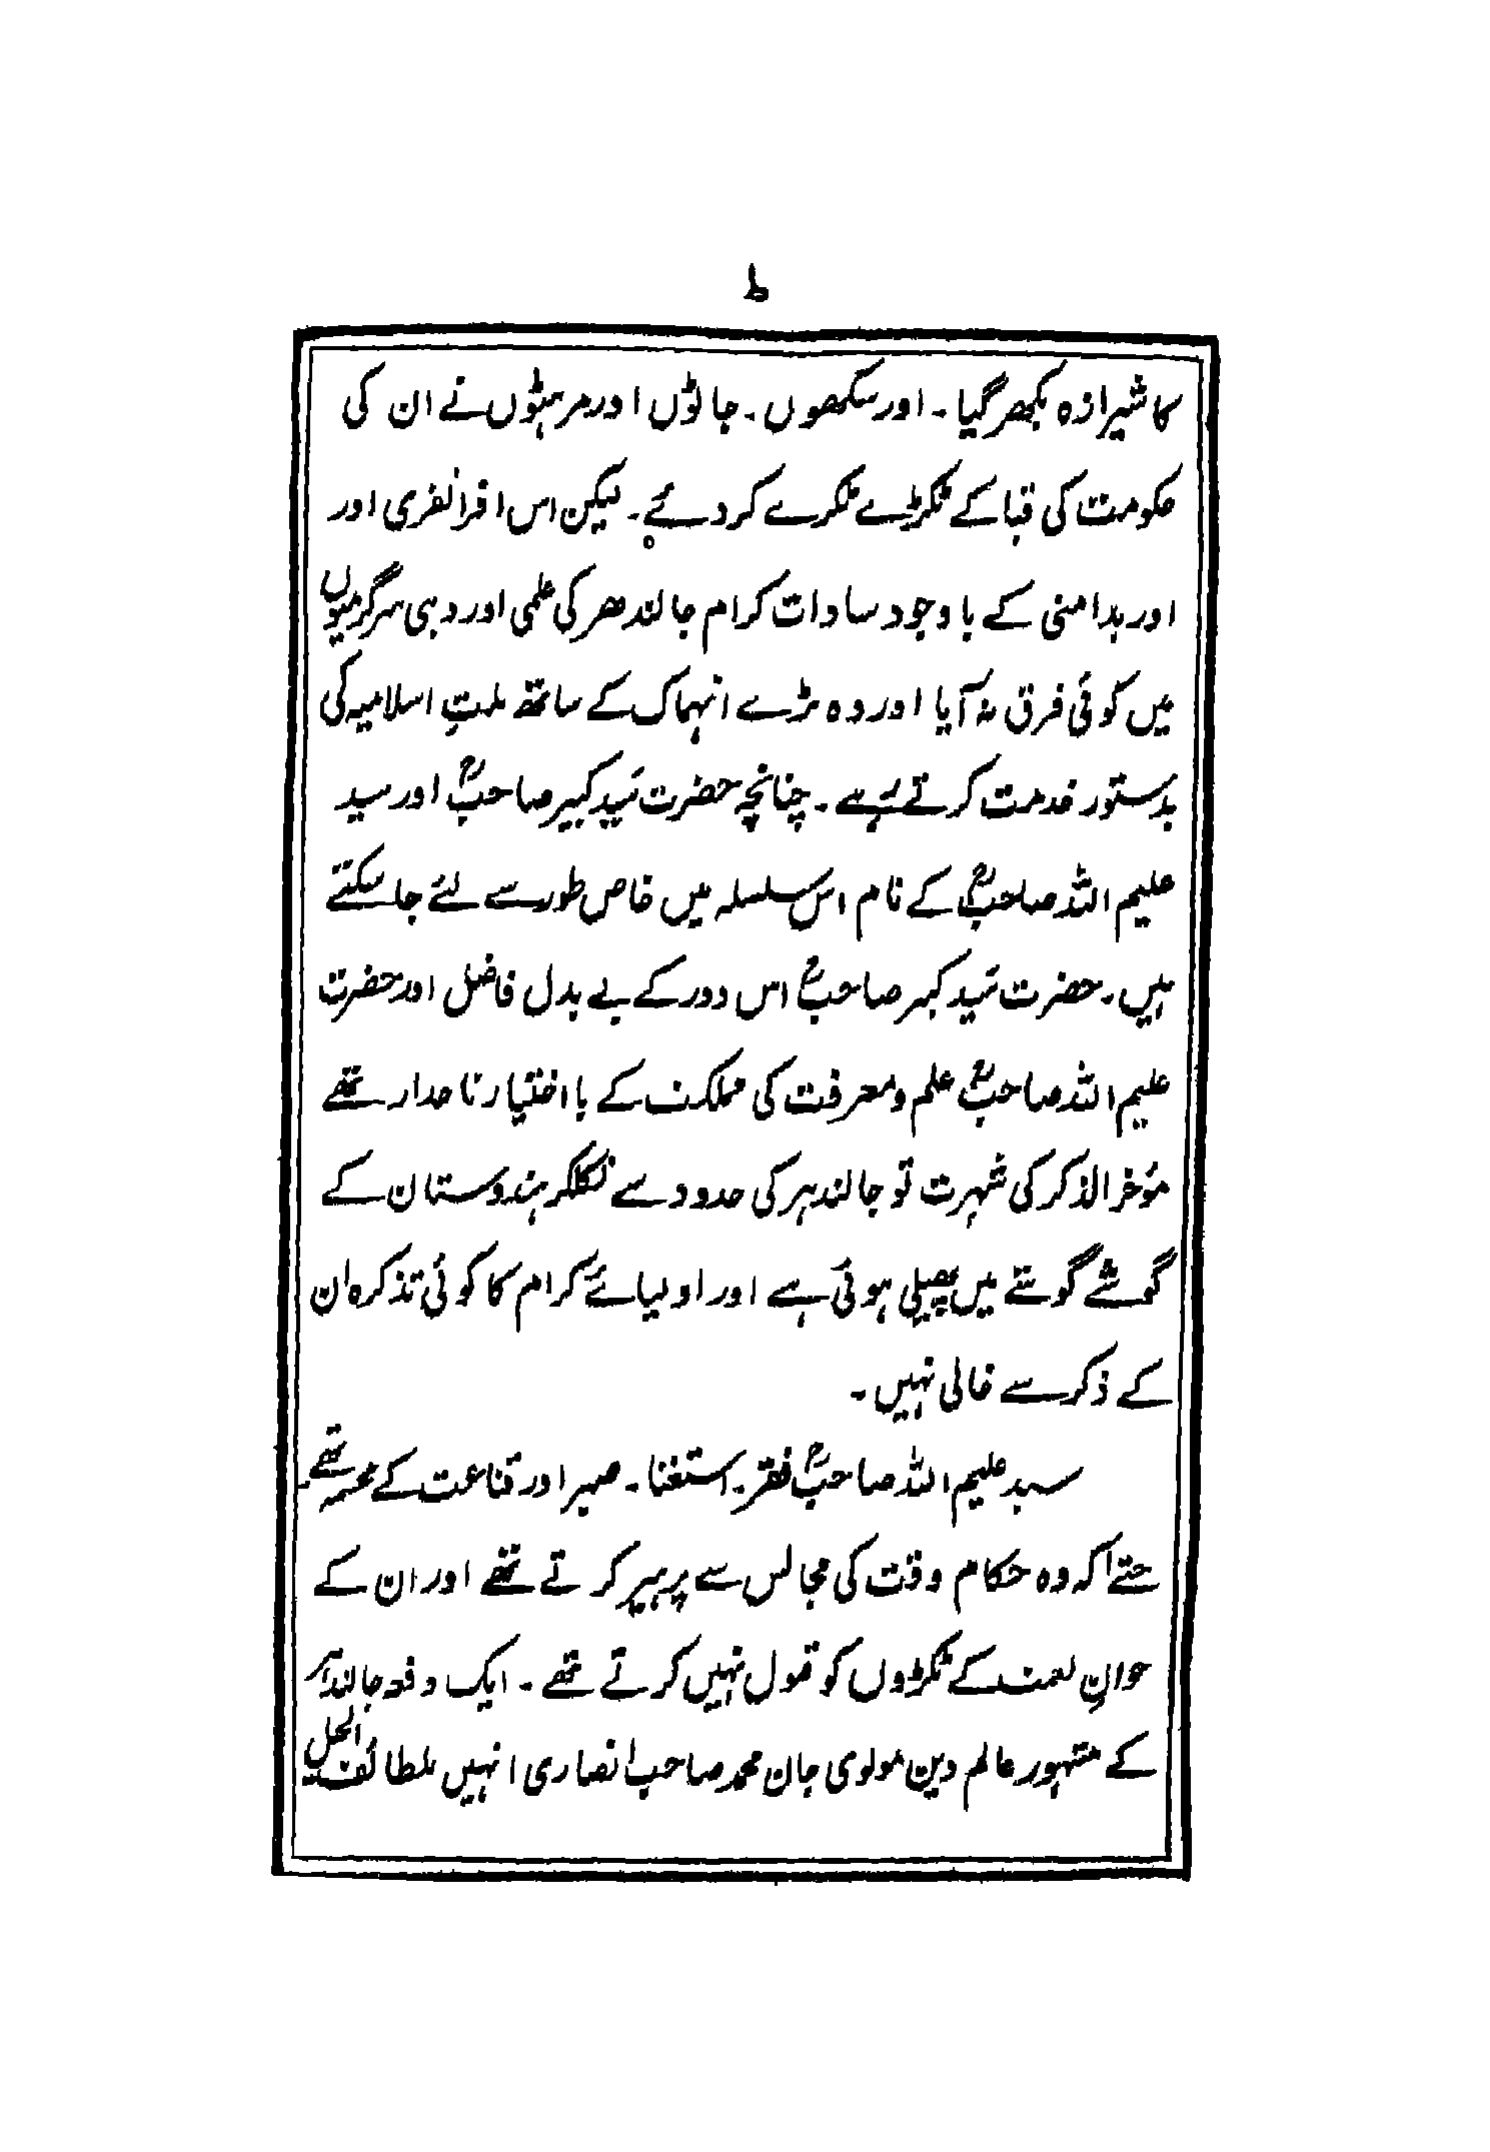 ط
کا شیرازہ بکھر گیا ۔ اور سکھوں ۔ جاٹوں اور مرہٹوں نے ان کی
حکومت کی قبا کے ٹکڑے ٹکرے کر دئے ۔ لیکن اس افراتفری اور
اور بدامنی کے باوجود سادات کرام جالندھر کی علمی اور دینی سرگرمیوں
میں کوئی فرق نہ آیا اور وہ بڑے انہماک کے ساتھ ملتِ اسلامیہ کی
بدستور خدمت کرتے رہے ۔ چنانچہ حضرت سَید کبیر صاحبؒ اور سید
علیم اللہ صاحبؒ کے نام اس سلسلہ میں خاص طور سے لئے جا سکتے
ہیں ۔ حضرت سَید کبیر صاحبؒ اس دور کے بے بدل فاضل اور حضرت
علیم اللہ صاحبؒ علم و معرفت کی مملکت کے با اختیار تاجدار تھے
مؤخر الذکر کی شہرت تو جالندہر کی حدود سے نکلکر ہندوستان کے
گوشے گوشے میں پھیلی ہوئی ہے اور اولیائے کرام کا کوئی تذکرہ ان
کے ذکر سے خالی نہیں ۔
سید علیم اللہ صاحبؒ فقر ۔ استغنا ۔ صبر اور قناعت کے مجسمہ تھے
حتےٰ کہ وہ حکام وقت کی مجالس سے پرہیز کر تے تھے اور ان کے
خوانِ نعمت کے ٹکڑوں کو قبول نہیں کرتے تھے ۔ ایک دفعہ جالندہر
کے مشہور عالم دین مولوی جان محمد صاحب انصاری انہیں بلطائف الحیل